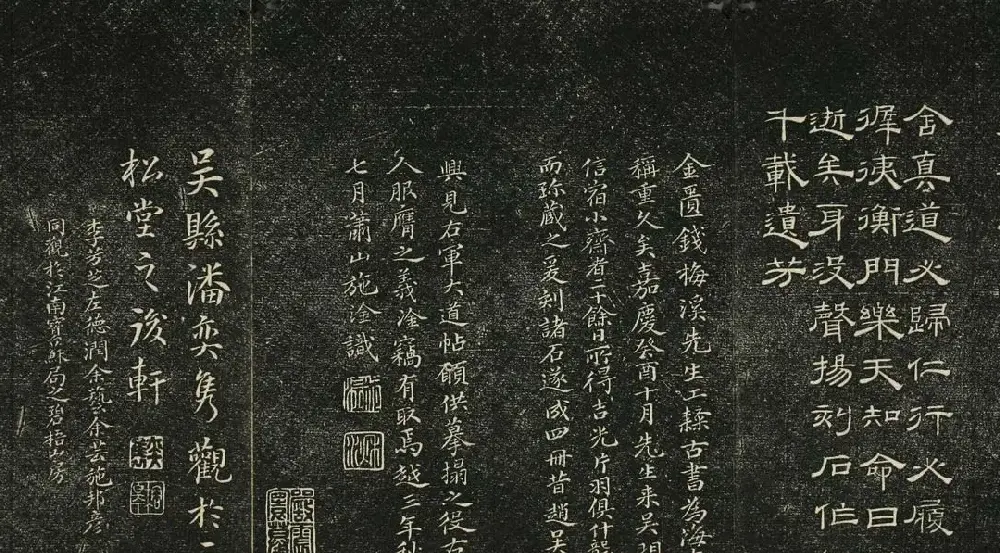 舍真道必歸仁行必履
徲侇衡門樂天知命日
逝矣身沒聲揚刻石作
千載遺芳
金匱錢梅溪先生工隸古書為海
稱重久矣嘉慶癸酉十月先生來吳
信宿小齋者二十餘日所得吉光片羽俱什襲
而珍藏之爰刻諸石遂成四冊昔趙吳
興見右軍大道帖願供摹搨之役古
人服膺之義淦竊有取焉越三年秋
七月蕭山施淦識
吳縣潘奕雋觀於一
松堂之後軒
李芳芝左德潤余藝余芸施邦彥
同觀於江南寶蘇局之碧梧山房